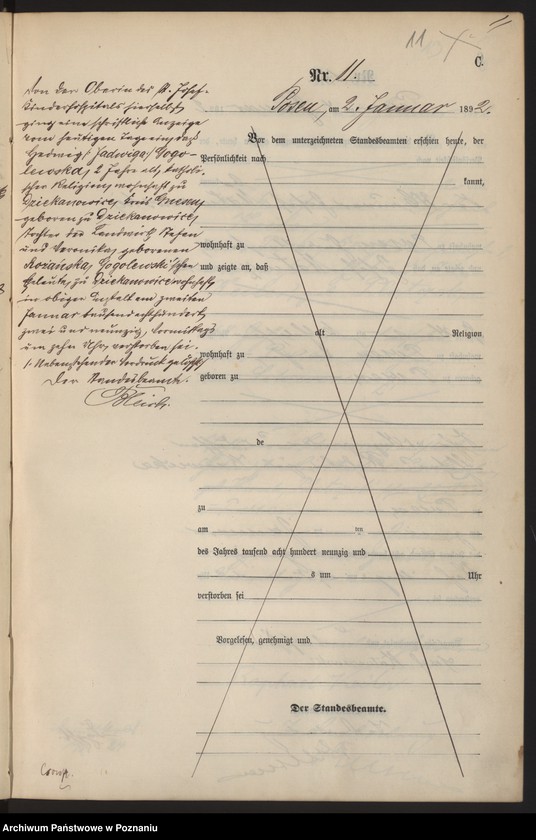 11
C.
Nr. 11.
Posen, am 2. Januar 1892.
Von der Oberin des St. Josef-
Kinderhospitals hierselbst
ging eine schriftliche Anzeige
vom heutigen Tage ein, daß
Hedwig (Jadwiga) Gogo-
lewska, 2 Jahre alt, katholi-
scher Religion, wohnhaft zu
Dziekanowice, Kreis Gnesen,
geboren zu Dziekanowice,
Tochter des Landwirth Stefan
und Veronika, geborenen
Rożańska, Gogolewski'schen
Eheleute, zu Dziekanowice wohnhaft,
in obiger Anstalt am zweiten
Januar tausendachthundert
zwei und neunzig, Vormittags
um zehn Uhr, verstorben sei.
Nebenstehender Vordruck gelöscht.
Der Standesbeamte.
Vor dem unterzeichneten Standesbeamten erschien heute, der
Persönlichkeit nach
kannt,
wohnhaft zu
und zeigte an, daß
alt, Religion
wohnhaft zu
geboren zu
de
zu
am ten
des Jahres tausend acht hundert neunzig und
s um Uhr
verstorben sei
Vorgelesen, genehmigt und
Der Standesbeamte.
Archiwum Państwowe w Poznaniu